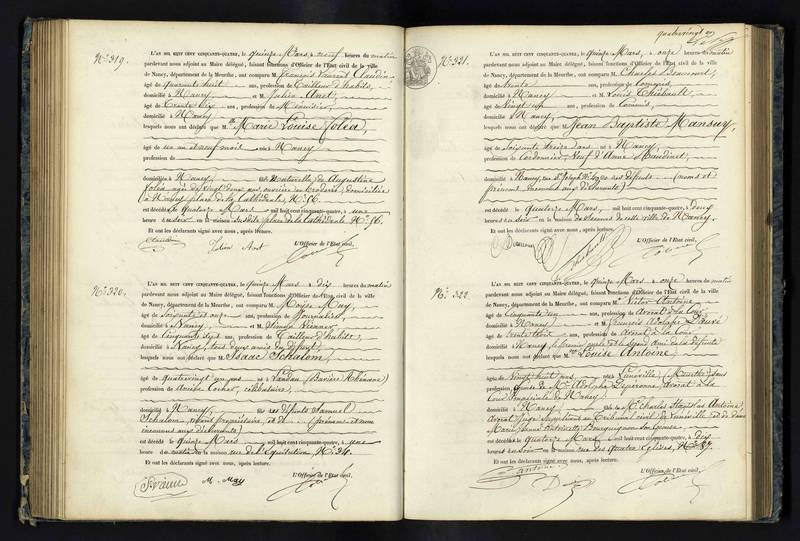 N.° 319.
L'AN MIL HUIT CENT CINQUANTE-QUATRE, le quinze Mars, à neuf heures du matin
pardevant nous adjoint au Maire délégué, faisant fonctions d'Officier de l'Etat civil de la ville
de Nancy, département de la Meurthe, ont comparu M. François Vincent Claudin
âgé de quarante huit ans, profession de Tailleur d'habits,
domicilié à Nancy et M. Julien Anet,
âgé de trente six ans, profession de Menuisier,
domicilié à Nancy
lesquels nous ont déclaré que Marie Louise Colea,
âgé de un an neuf mois né à Nancy
profession de
domiciliée à Nancy, fille Naturelle de Augustine
Colea âgée de vingt deux ans, ouvrière en broderie, domiciliée
à Nancy place de la Cathédrale, N.° 56.
est décédé le quatorze Mars mil huit cent cinquante-quatre, à une
heure du soir en la maison susdite place de la Cathédrale N.° 56.
Et ont les déclarants signé avec nous, après lecture.
Claudin
L'Officier de l'Etat civil,
N.° 320.
L'AN MIL HUIT CENT CINQUANTE-QUATRE, le quinze Mars à dix heures du matin
pardevant nous adjoint au Maire délégué, faisant fonctions d'Officier de l'Etat civil de la ville
de Nancy, département de la Meurthe, ont comparu M. Moïse May,
âgé de soixante et onze ans, profession de Journalier,
domicilié à Nancy, et M.
âgé de cinquante sept ans, profession de Tailleur d'habits,
domicilié à Nancy, tous deux amis du défunt,
lesquels nous ont déclaré que M. Isaac Schalom,
âgé de quatrevingt un ans né à Landau (Bavière Rhénane)
profession de Ancien Cocher, célibataire,
domicilié à Nancy, fils des défunts Samuel
Schalom, vivant propriétaire, et de (prénoms et nom
inconnus aux déclarants)
est décédé le quinze Mars mil huit cent cinquante-quatre, à une
heure du matin en la maison rue de l'Equitation, N.° 34.
Et ont les déclarants signé avec nous, après lecture.
L'Officier de l'Etat civil,
M. May
quatrevingt un
N.° 321.
L'AN MIL HUIT CENT CINQUANTE-QUATRE, le quinze Mars, à onze heures du matin
pardevant nous adjoint au Maire délégué, faisant fonctions d'Officier de l'Etat civil de la ville
de Nancy, département de la Meurthe, ont comparu M. Charles
âgé de trente ans, profession de Commis,
domicilié à Nancy et M. Louis Thiébault,
âgé de vingt un ans, profession de Commis,
domicilié à Nancy,
lesquels nous ont déclaré que Jean Baptiste Mansuy,
âgé de soixante treize ans né à Nancy,
profession de Cordonnier, Veuf d'Anne Maudinet,
domicilié à Nancy, rue St Joseph, fils des défunts (noms et
prénoms inconnus aux déclarants)
est décédé le quatorze Mars, mil huit cent cinquante-quatre, à deux
heures du soir en la maison de Secours de cette ville de Nancy.
Et ont les déclarants signé avec nous, après lecture.
L'Officier de l'Etat civil,
N.° 322.
L'AN MIL HUIT CENT CINQUANTE-QUATRE, le quinze Mars à onze heures du matin
pardevant nous adjoint au Maire délégué, faisant fonctions d'Officier de l'Etat civil de la ville
de Nancy, département de la Meurthe, ont comparu M. Victor Antoine,
âgé de cinquante un ans, profession de Avocat à la Cour,
domicilié à Nancy et M. François Adolphe
âgé de trente ans, profession de Avocat à la Cour
domicilié à Nancy, le premier oncle et le second ami de la défunte
lesquels nous ont déclaré que Louise Antoine,
âgé de vingt huit ans née à Lunéville (Meurthe) sans
profession épouse de M. Adolphe Avocat à la
Cour Impériale de Nancy,
domicilié à Nancy fille de M. Charles Stanislas Antoine,
Avocat, juge suppléant au Tribunal civil de Lunéville et de dame
Marie Anne son épouse
est décédée le quatorze Mars mil huit cent cinquante-quatre, à dix
heures du soir en la maison rue des quatre Eglises, N.° 87.
Et ont les déclarants signé avec nous, après lecture.
L'Officier de l'Etat civil,
Antoine